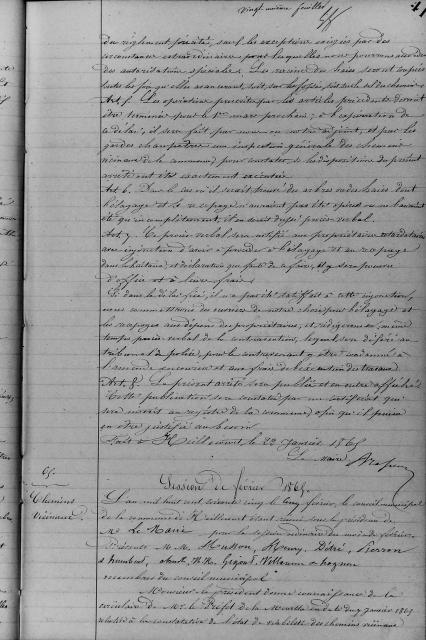 vingt unième feuillet
41
du règlement précité, sauf les exceptions exigées par des
circonstances extraordinaires pour lesquelles nous pourrons accorder
des autorisations spéciales. Les racines des haies seront coupées
toutes les fois qu'elles avanceront, soit sur les fossés, soit sur le sol du chemin.
Art. 5. Les opérations prescrites par les articles précédents devront
être terminées pour le 1er mars prochain; à l'expiration de
ce délai, il sera fait par nous ou notre adjoint, et par les
gardes champêtres une inspection générale des chemins
vicinaux de la commune, pour constater si les dispositions du présent
arrêté ont été exactement exécutées.
Art. 6. Dans le cas où il serait trouvé des arbres ou des haies dont
l'élagage et le recepage n'auraient pas été opérés ou ne l'auraient
été qu'incomplètement, il en serait dressé procès verbal.
Art. 7. Ce procès verbal sera notifié aux propriétaires retardataires
avec injonction d'avoir à procéder à l'élagage et au recepage
dans la huitaine, et déclaration que faute de le faire, il y sera pourvu
d'office et à leurs frais.
Si dans le délai fixé, il n'a pas été satisfait à cette injonction,
nous commettrons des ouvriers de notre choix pour l'élagage et
les recepages aux dépens des propriétaires, et rédigerons en même
temps procès verbal de la contravention, lequel sera déféré au
tribunal de police, pour le contrevenant y être condamné à
l'amende encourue et aux frais de l'exécution des travaux.
Art. 8. Le présent arrêté sera publié et en outre affiché.
Cette publication sera constatée par un certificat qui
sera inscrit au registre de la commune, afin qu'il puisse
en être justifié au besoin.
Fait à le 22 janvier 1865
Le maire
65.
Chemins
Vicinaux.
Session de février 1865.
L'an mil huit cent soixante cinq le février, le conseil municipal
de la commune de étant réuni sous la présidence de
Mr Le Maire pour la session ordinaire du mois de février.
Présents M. M. Husson, Henry, Détré, Pierron
membres du conseil municipal
Monsieur le président donne connaissance de la
circulaire de Mr. le Préfet de la Meurthe en date du 9 janvier 1865
relative à la constatation de l'état de viabilité des chemins vicinaux